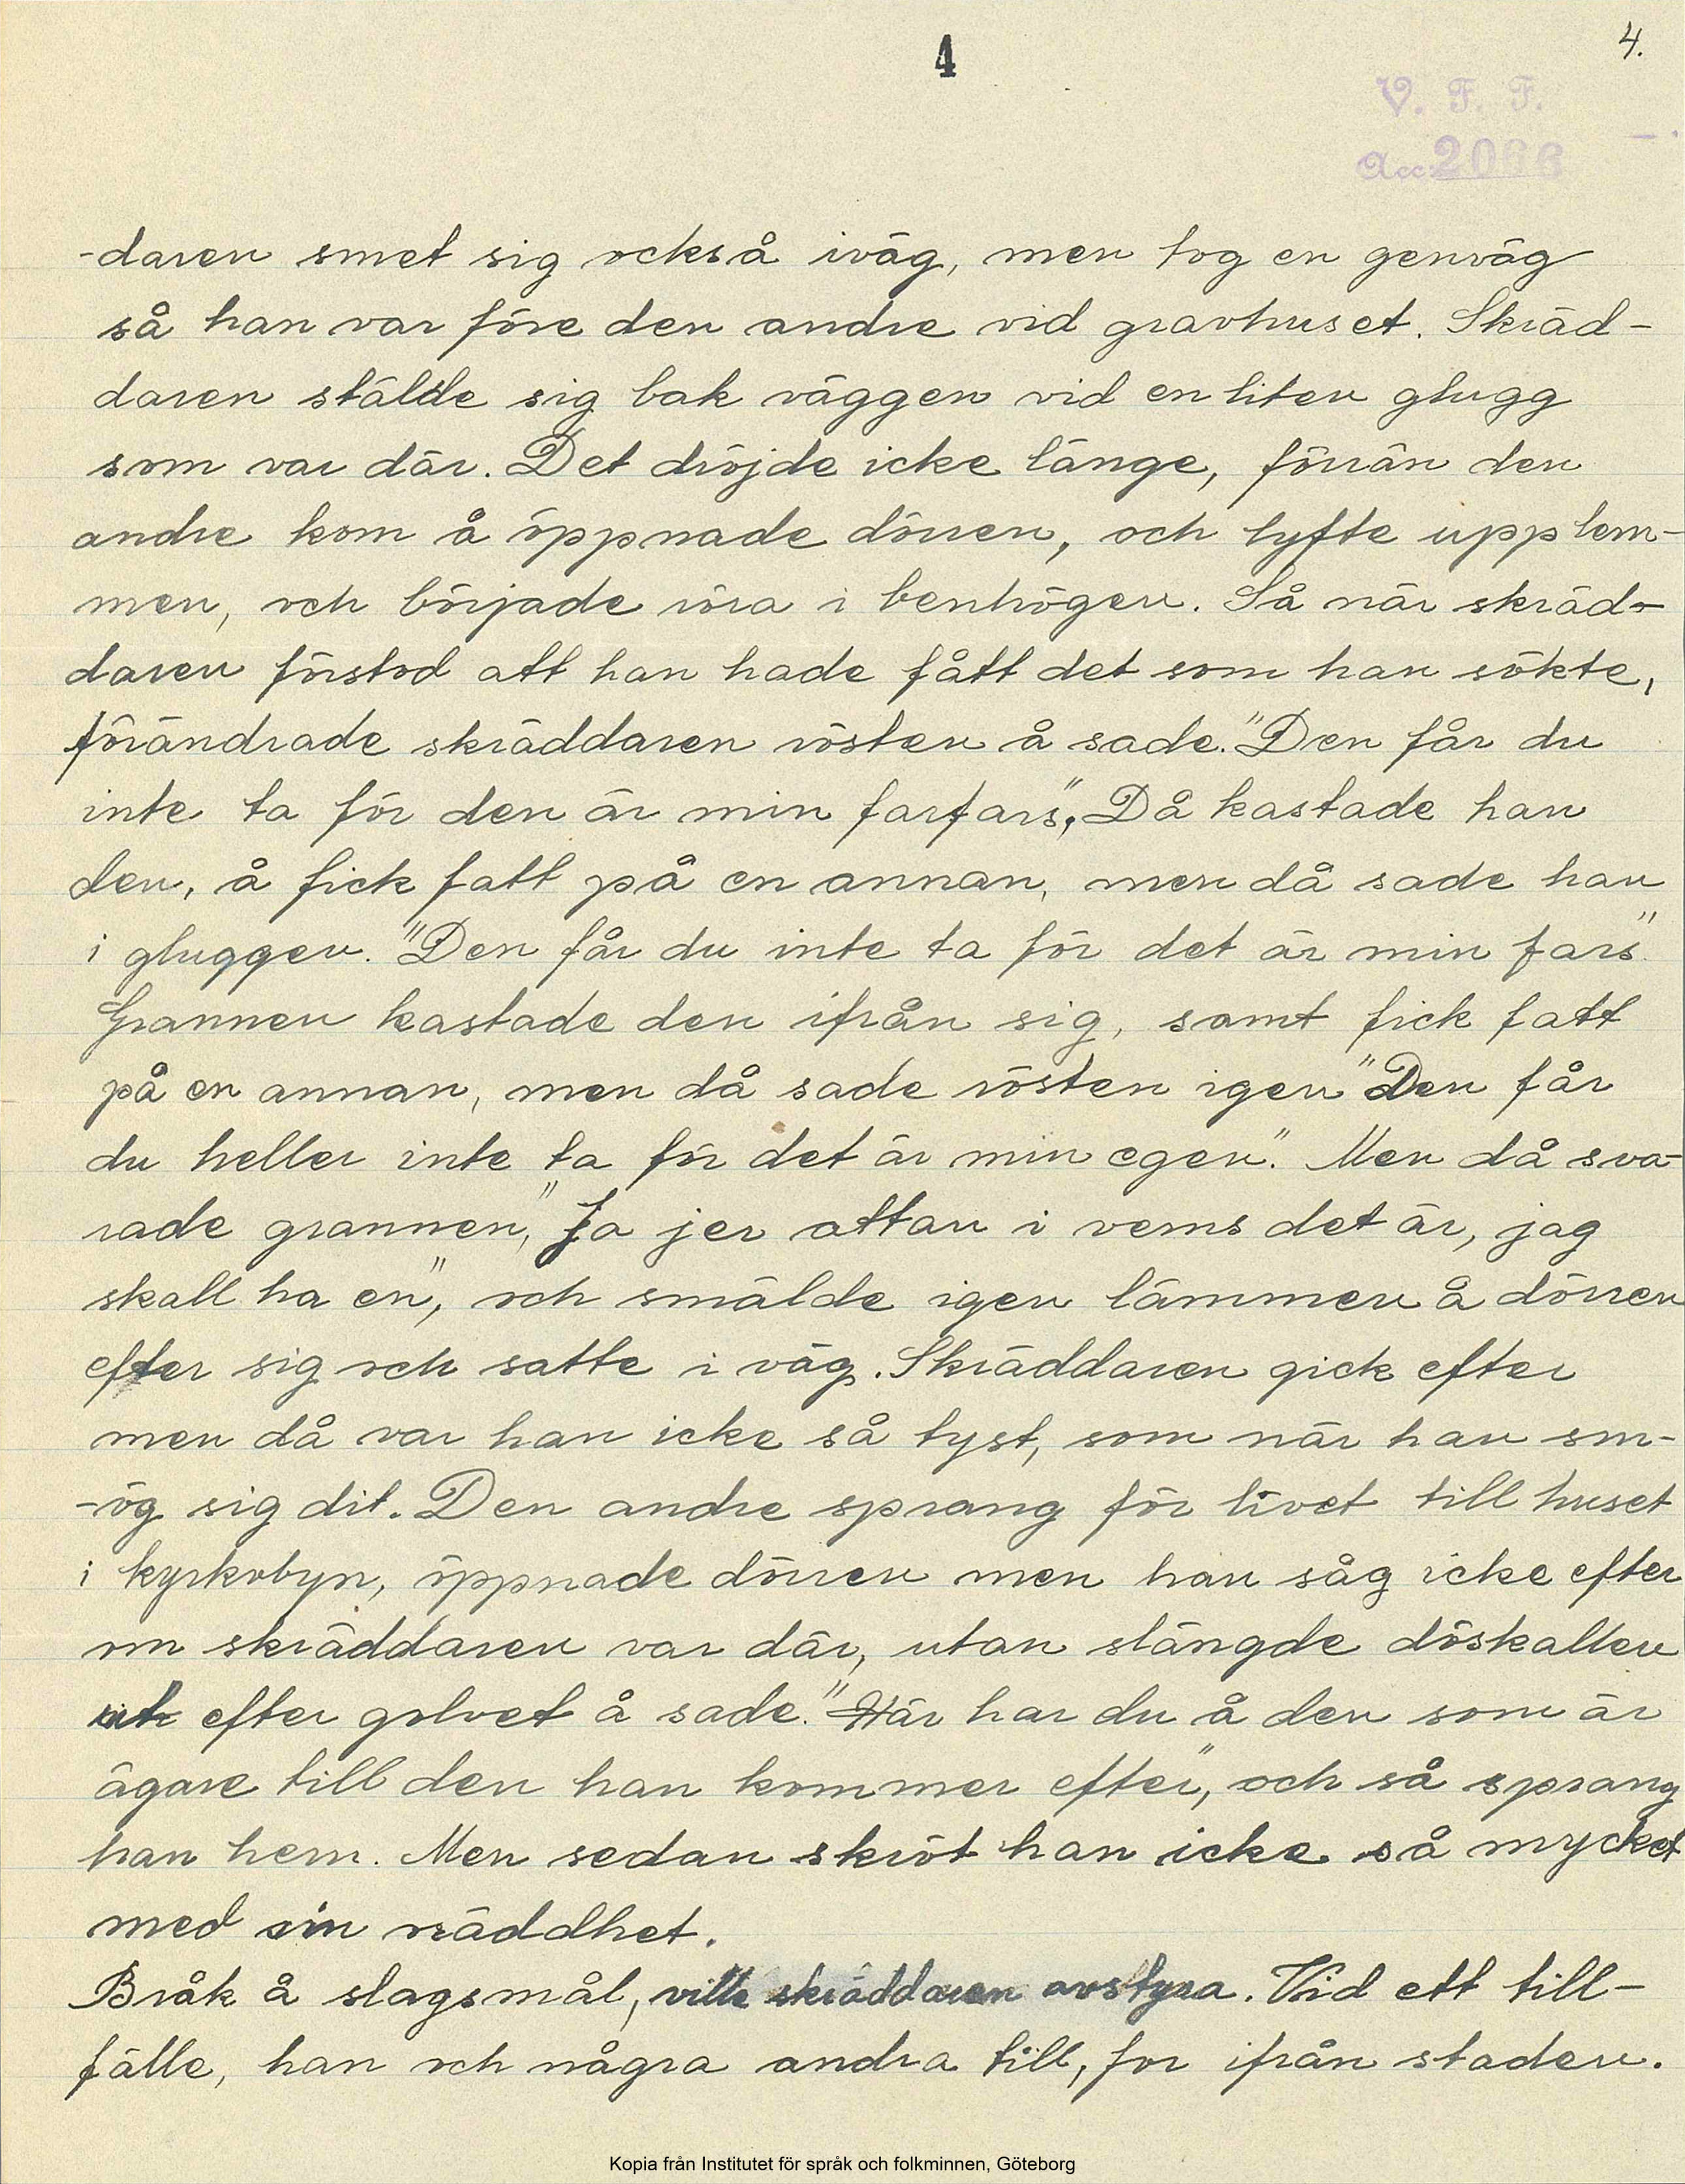 4
4.
V. F. F.
Acc. 2066
-daren smet sig också iväg, men tog en genväg
så han var före den andre vid gravhuset. Skräd-
daren stälde sig bak väggen vid en liten glugg
som var där. Det dröjde icke länge, förrän den
andre kom å öppnade dörren, och lyfte upp lem-
men, och började röra i benhögen. Så när skräd-
daren förstod att han hade fått det som han sökte,
förändrade skräddaren rösten å sade. "Den får du
inte ta för den är min farfars", Då kastade han
den, å fick fatt på en annan, men då sade han
i gluggen. "Den får du inte ta för det är min fars".
Grannen kastade den ifrån sig, samt fick fatt
på en annan, men då sade rösten igen "Den får
du heller inte ta för det är min egen". Men då sva-
rade grannen, "Ja jer attan i vems det är, jag
skall ha en", och smälde igen lämmen å dörren
efter sig och satte i väg. Skräddaren gick efter
men då var han icke så tyst, som när han sm-
-ög sig dit. Den andre sprang för livet till huset
i kyrkobyn, öppnade dörren men han såg icke efter
om skräddaren var där, utan slängde döskallen
efter golvet å sade. "Här har du å den som är
ägare till den han kommer efter", och så sprang
han hem. Men sedan skröt han icke så mycket
med sin räddhet.
Bråk å slagsmål, ville skräddaren avstyra. Vid ett till-
fälle, han och några andra till, for ifrån staden.
Kopia från Institutet för språk och folkminnen, Göteborg